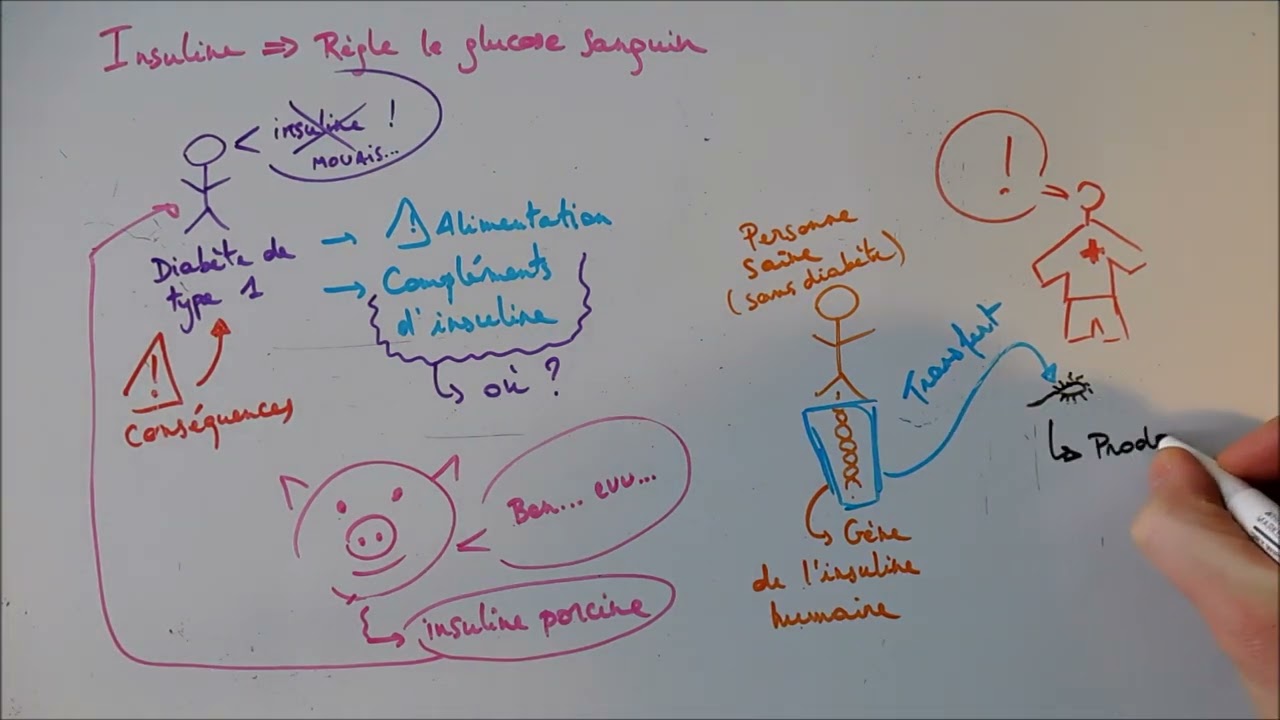 Insuline => Règle le glucose sanguin
insuline !
MOUAIS...
Diabète de
type 1
→ ! Alimentation
→ Compléments
d'insuline
↳ où ?
!
Conséquences
Ben... euu...
insuline porcine
Personne
saine
(sans diabète)
!
Transfert
Gène
de l'insuline
humaine
↳ Prod